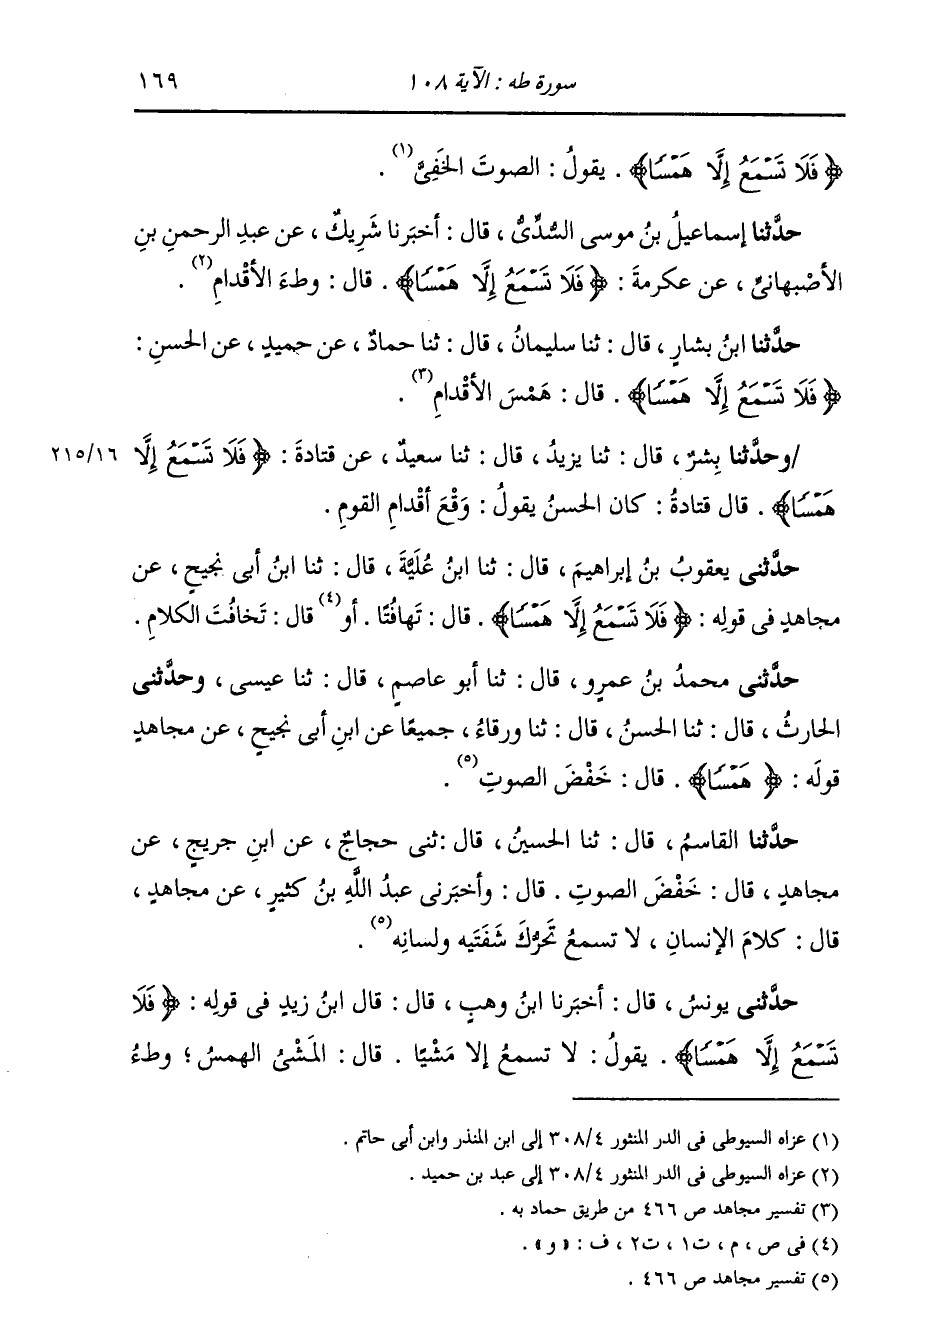 سورة طه : الآية ١٠٨ ١٦٩
﴿ فَلَا تَسْمَعُ إِلَّا هَمْسًا﴾ . يقولُ : الصوتَ الخَفِىَّ(١) .
حدَّثنا إسماعيلُ بنُ موسى السُّدِّىُّ ، قال : أخبَرنا شَرِيكٌ ، عن عبدِ الرحمنِ بنِ
الأصْبهانىِّ ، عن عكرمةَ : ﴿ فَلَا تَسْمَعُ إِلَّا هَمْسًا﴾ . قال : وطءَ الأقْدامِ(٢) .
حدَّثنا ابنُ بشارٍ ، قال : ثنا سليمانُ ، قال : ثنا حمادٌ ، عن حميدٍ ، عن الحسنِ :
﴿ فَلَا تَسْمَعُ إِلَّا هَمْسًا﴾ . قال : هَمْسَ الأقْدامِ(٣) .
/وحدَّثنا بِشرٌ ، قال : ثنا يزيدُ ، قال : ثنا سعيدٌ ، عن قتادةَ : ﴿ فَلَا تَسْمَعُ إِلَّا ٢١٥/١٦
هَمْسًا﴾ . قال قتادةُ : كان الحسنُ يقولُ : وَقْعَ أقْدامِ القومِ .
حدَّثنى يعقوبُ بنُ إبراهيمَ ، قال : ثنا ابنُ عُلَيَّةَ ، قال : ثنا ابنُ أبى نَجيحٍ ، عن
مجاهدٍ فى قولِه : ﴿ فَلَا تَسْمَعُ إِلَّا هَمْسًا﴾ . قال : تَهافُتًا . أو(٤) قال : تَخافُتَ الكلامِ .
حدَّثنى محمدُ بنُ عمرٍو ، قال : ثنا أبو عاصمٍ ، قال : ثنا عيسى ، وحدَّثنى
الحارثُ ، قال : ثنا الحسنُ ، قال : ثنا ورقاءُ ، جميعًا عن ابنِ أبى نَجيحٍ ، عن مجاهدٍ
قولَه : ﴿ هَمْسًا﴾ . قال : خَفْضَ الصوتِ(٥) .
حدَّثنا القاسمُ ، قال : ثنا الحسينُ ، قال :ثنى حجاجٌ ، عن ابنِ جريجٍ ، عن
مجاهدٍ ، قال : خَفْضَ الصوتِ . قال : وأخبَرنى عبدُ اللَّهِ بنُ كثيرٍ ، عن مجاهدٍ ،
قال : كلامَ الإنسانِ ، لا تسمعُ تَحَرُّكَ شَفَتَيه ولسانِه(٥) .
حدَّثنى يونسُ ، قال : أخبَرنا ابنُ وهبٍ ، قال : قال ابنُ زيدٍ فى قولِه : ﴿ فَلَا
تَسْمَعُ إِلَّا هَمْسًا﴾ . يقولُ : لا تسمعُ إلا مَشْيًا . قال : المَشْىُ الهمسُ ؛ وطءُ
(١) عزاه السيوطى فى الدر المنثور ٣٠٨/٤ إلى ابن المنذر وابن أبى حاتم .
(٢) عزاه السيوطى فى الدر المنثور ٣٠٨/٤ إلى عبد بن حميد .
(٣) تفسير مجاهد ص ٤٦٦ من طريق حماد به .
(٤) فى ص ، م ، ت١ ، ت٢ ، ف : « و » .
(٥) تفسير مجاهد ص ٤٦٦ .